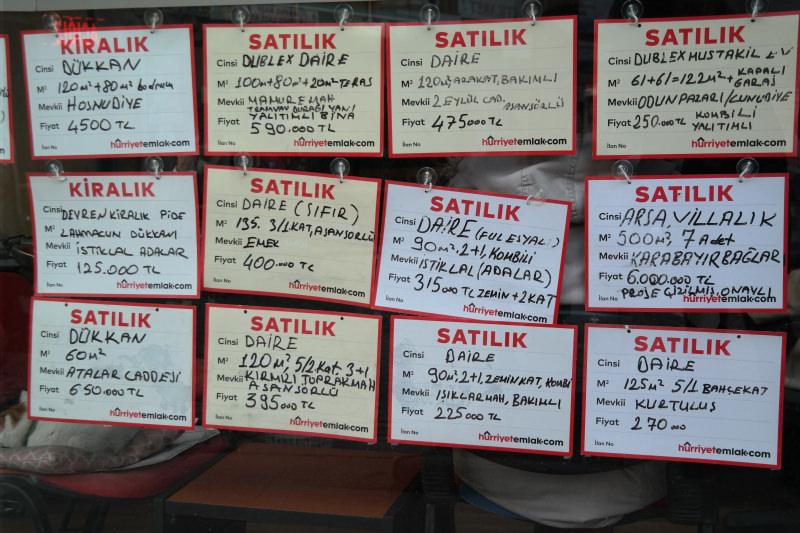 KİRALIK
Cinsi DÜKKAN
M² 120m²+80m² bodrum
Mevkii HOŞNUDİYE
Fiyat 4500 TL
İlan No hürriyetemlak.com
SATILIK
Cinsi DUBLEX DAİRE
M² 100m+80m²+20m²TERAS
Mevkii MAMUREMAH
TRAMVAY DURAĞI YANI
YALITIMLI BİNA
Fiyat 590.000 TL
İlan No hürriyetemlak.com
SATILIK
Cinsi DAİRE
M² 120m², ARAKAT, BAKIMLI
Mevkii 2 EYLÜL CAD. ASANSÖRLÜ
Fiyat 475000 TL
İlan No hürriyetemlak.com
SATILIK
Cinsi DUBLEX MUSTAKİL EV
M² 61+61=122m²+ KAPALI GARAJ
Mevkii ODUNPAZARI/CUNUDİYE
Fiyat 250.000 TL KOMBİLİ
YALITIMLI
İlan No hürriyetemlak.com
KİRALIK
Cinsi DEVREN KİRALIK PİDE
M² LAHMACUN DÜKKANI
Mevkii İSTİKLAL ADALAR
Fiyat 125.000 TL
İlan No hürriyetemlak.com
SATILIK
Cinsi DAİRE (SIFIR)
M² 135. 3/1 KAT, ASANSÖRLÜ
Mevkii EMEK
Fiyat 400.000 TL
İlan No hürriyetemlak.com
SATILIK
Cinsi DAİRE (FULEŞYALI)
M² 90m², 2+1, KOMBİLİ
Mevkii İSTİKLAL (ADALAR)
Fiyat 315000 TL ZEMİN+2KAT
İlan No hürriyetemlak.com
SATILIK
Cinsi ARSA, VİLLALIK
M² 500m², 7 Adet
Mevkii KARABAYIR BAĞLAR
Fiyat 6.000.000 TL
PROJE ÇİZİLMİŞ, ONAYLI
İlan No hürriyetemlak.com
SATILIK
Cinsi DÜKKAN
M² 60m²
Mevkii ATALAR CADDESİ
Fiyat 650.000 TL
İlan No hürriyetemlak.com
SATILIK
Cinsi DAİRE
M² 120m², 5/2 Kat 3+1
Mevkii KIRMIZI TOPRAK MAH
ASANSÖRLÜ
Fiyat 395000 TL
İlan No hürriyetemlak.com
SATILIK
Cinsi DAİRE
M² 90m², 2+1, ZEMİN KAT, KOMBİ
Mevkii IŞIKLAR MAH, BAKIMLI
Fiyat 225000 TL
İlan No hürriyetemlak.com
SATILIK
Cinsi DAİRE
M² 125m² 5/1 BAHÇE KAT
Mevkii KURTULUŞ
Fiyat 270 000
İlan No hürriyetemlak.com